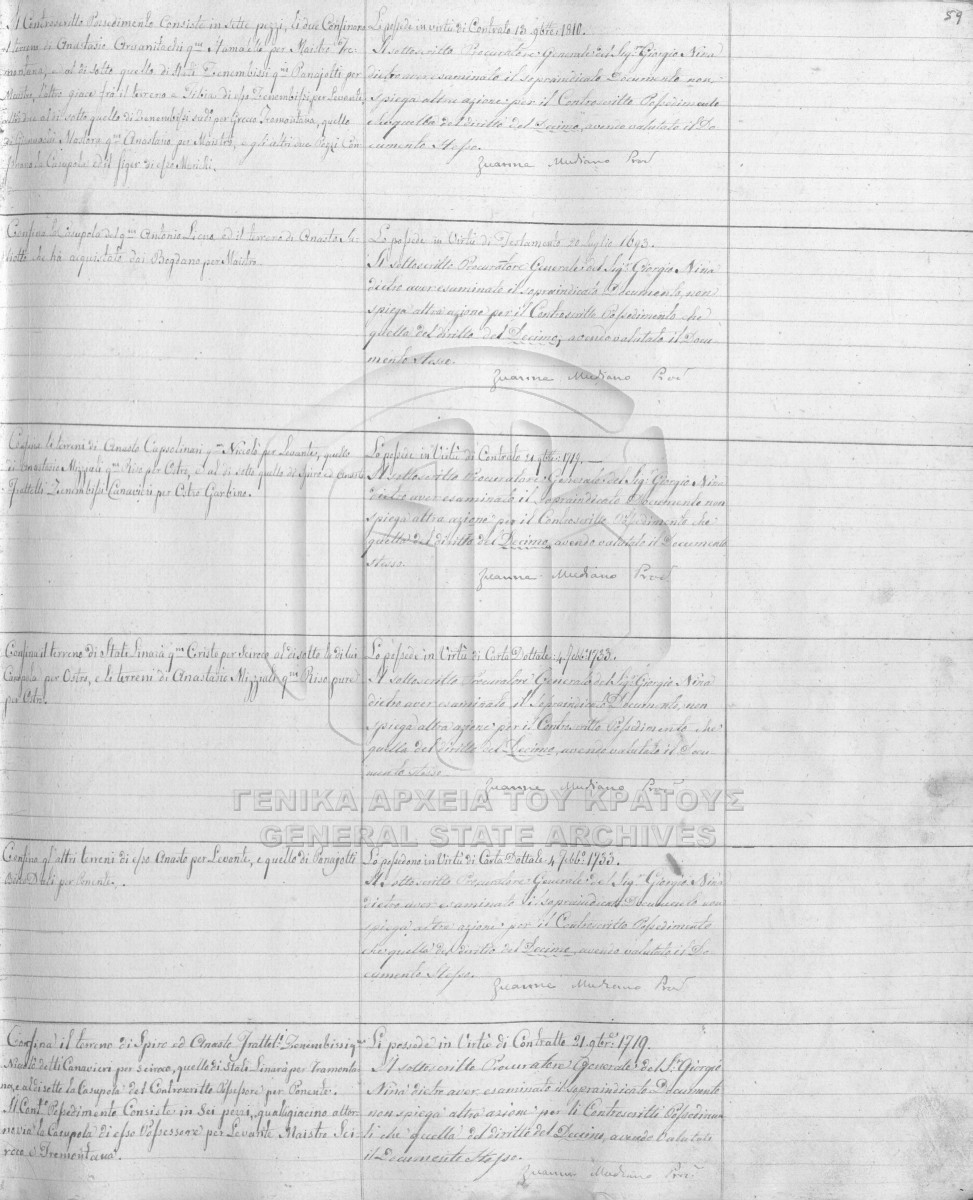 59
Il Controscritto Possedimento Consiste in sette pezzi, li due Confinano
al terreno di Anastasio
per Maestro Tre-
montana, e al di sotto quello di Stati Zenembissi qm Panajotti per
Maistro, l'altro giace frà il terreno e
di esso Zenembissi per Levante,
al di sotto quello di Zenembissi sudo per Greco Tramontana, quello
qm Anastasio per Maistro, e gl'altri due Pezzi Con-
finano la Casupola ed il
di esso
Lo possede in virtù di Contratto 13 9bre 1810.
Il sottoscritto Procuratore Generale del Sigr Giorgio Nina
dietro aver esaminato il sopraindicato Documento non
spiega altra azione per il Controscritto Possedimento
che quella del diritto del Decimo, avendo valutato il Do-
cumento Stesso.
Zuanne Mudiano Procr
Confina la Casupola del qm Antonio
ed il terreno di Anasto
che hà acquistato dai Bogdano per Maistro
Lo possede in Virtù di Testamento 20 Luglio 1693.
Il sottoscritto Procuratore Generale del Sigr Giorgio Nina
dietro aver esaminato il sopraindicato Documento, non
spiega altra azione per il Controscritto Possedimento che
quella del diritto del Decimo, avendo valutato il Docu-
mento Stesso.
Zuanne Mudiano Procr
Confina li terreni di Anasto Capsolinari qm Nicolò per Levante, quello
di Anastasio Mizzali qm Riso per Ostro, e al di sotto quello di Spiro ed Anasto
Frattelli Zenembissi Canavieri per Ostro Garbino.
Lo possede in Virtù di Contratto 21 9bre 1719.
Il sottoscritto Procuratore Generale del Sigr Giorgio Nina
dietro aver esaminato il sopraindicato Documento non
spiega altra azione per il Controscritto Possedimento che
quella del diritto del Decimo, avendo valutato il Documento
stesso.
Zuanne Mudiano Procr
Confina il terreno di Stati Linarà qm Cristo per Scirocco al di sotto la di lui
Casupola per Ostro, e li terreni di Anastasio Mizzali qm Riso pure
per Ostro.
Lo possede in Virtù di Carta Dottale 4 Febbo 1733.
Il sottoscritto Procuratore Generale del Sigr Giorgio Nina
dietro aver esaminato il Sopraindicato Documento, non
spiega altra azione per il Controscritto Possedimento che
quella del diritto del Decimo, avendo valutato il Docu-
mento stesso.
Zuanne Mudiano Procr
ΓΕΝΙΚΑ ΑΡΧΕΙΑ ΤΟΥ ΚΡΑΤΟΥΣ
GENERAL STATE ARCHIVES
Confina gl'altri terreni di esso Anasto per Levante, e quello di Panajotti
per Ponente.
Lo possedono in Virtù di Carta Dottale 4 Febbo 1733.
Il sottoscritto Procuratore Generale del Sigr Giorgio Nina
dietro aver esaminato il sopraindicato Documento non
spiega altra azione per il Controscritto Possedimento
che quella del diritto del Decimo, avendo valutato il Do-
cumento Stesso.
Zuanne Mudiano Procr
Confina il terreno di Spiro ed Anasto Frattelli Zenembissi qm
Nicolò detti Canavieri per scirocco, quello di Stati Linarà per Tramonta-
na, e al di sotto la Casupola del Controscritto Possessore per Ponente.
Il Conto Possedimento Consiste in Sei pezzi, quali giacino attor-
no via la Casupola di esso Possessore per Levante Maistro Sci-
rocco e Tramontana.
Li possede in Virtù di Contratto 21 9bre 1719.
Il sottoscritto Procuratore Generale del Sr Giorgio
Nina dietro aver esaminato il sopraindicato Documento
non spiega altra azione per li Controscritti Possedimen-
ti che quella del diritto del Decimo, avendo valutato
il Documento Stesso.
Zuanne Mudiano Procr